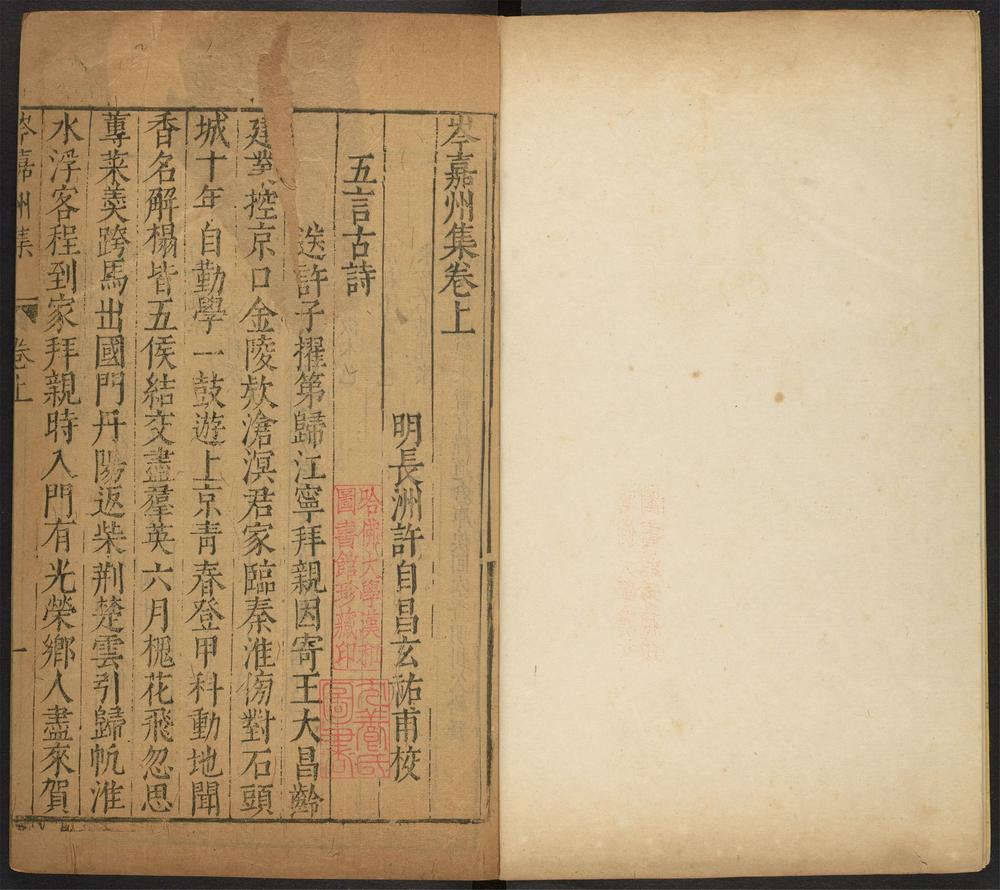 岑嘉州集卷上
明長洲許自昌玄祐甫校
五言古詩
送許子擢第歸江寧拜親因寄王大昌齡
建業控京口金陵欵滄溟君家臨秦淮傍對石頭
城十年自勤學一鼓遊上京青春登甲科動地聞
香名解榻皆五侯結交盡羣英六月槐花飛忽思
蓴菜羮跨馬出國門丹陽返柴荆楚雲引歸帆淮
水浮客程到家拜親時入門有光榮鄉人盡來賀
岑嘉州集
卷上
一
哈佛大學漢和
圖書館珍藏印
圖書